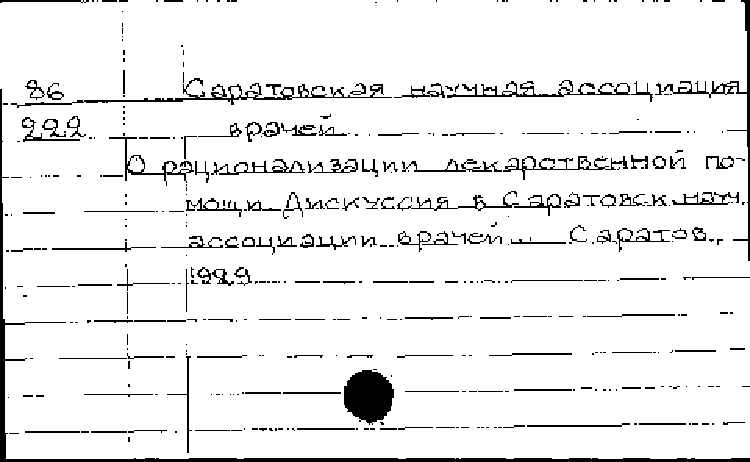 86
222
Саратовская научная ассоциация
врачей
О рационализации лекарственной по-
мощи. Дискуссия в Саратовск. науч.
ассоциации врачей. Саратов.,
1929